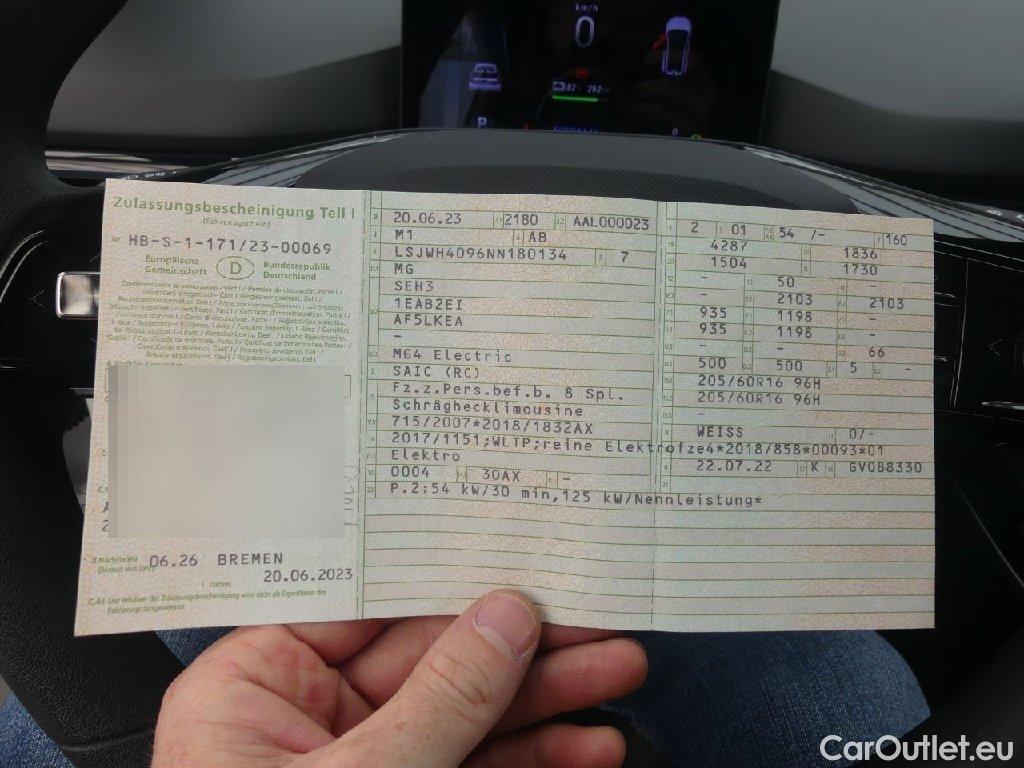 km/h
0
82% 262
P
0
Zulassungsbescheinigung Teil I
(Fahrzeugschein)
Nr. HB-S-1-171/23-00069
Europäische Gemeinschaft D Bundesrepublik Deutschland
06.26 BREMEN
20.06.2023
C.4c Der Inhaber der Zulassungsbescheinigung wird nicht als Eigentümer des
Fahrzeugs ausgewiesen.
20.06.23 2180 AAL000023
M1 AB
LSJWH4096NN180134 7
MG
SEH3
1EAB2EI
AF5LKEA
–
MG4 Electric
SAIC (RC)
Fz.z.Pers.bef.b. 8 Spl.
Schräghecklimousine
715/2007*2018/1832AX
2017/1151;WLTP;reine Elektrofze4*2018/858*00093*01
Elektro
0004 30AX –
P.2:54 kW/30 min,125 kW/Nennleistung*
2 01 54 /- 160
4287 1836
1504 1730
– 50 –
– 2103 2103
935 1198 –
935 1198 –
– – 66
500 500 5 –
205/60R16 96H
205/60R16 96H
–
WEISS 0/-
22.07.22 K GV088330
CarOutlet.eu